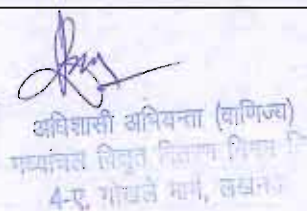 अधिशासी अभियन्ता (वाणिज्य)
मध्यांचल विद्युत वितरण निगम लि
4-ए, गोखले मार्ग, लखनऊ